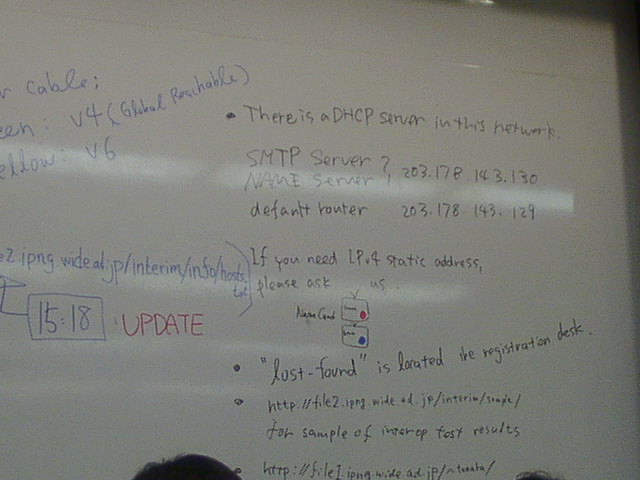 r cable:
een: v4 (Global Reachable)
ellow: v6
e2.ipng.wide.ad.jp/interim/info/hosts.txt
15:18 UPDATE
• There is a DHCP server in this network.
SMTP Server
NAME Server 203.178.143.130
default router 203.178.143.129
If you need IPv4 static address,
please ask us.
Name Card
• "lost-found" is located the registration desk.
• http://file2.ipng.wide.ad.jp/interim/sample/
for sample of interop test results
• http://file2.ipng.wide.ad.jp/~tanaka/